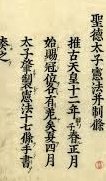 聖德太子憲法并制條
推古天皇十二年甲子春正月
始賜冠位各有差矣夏四月
太子肇製憲法十七條手書
奏之